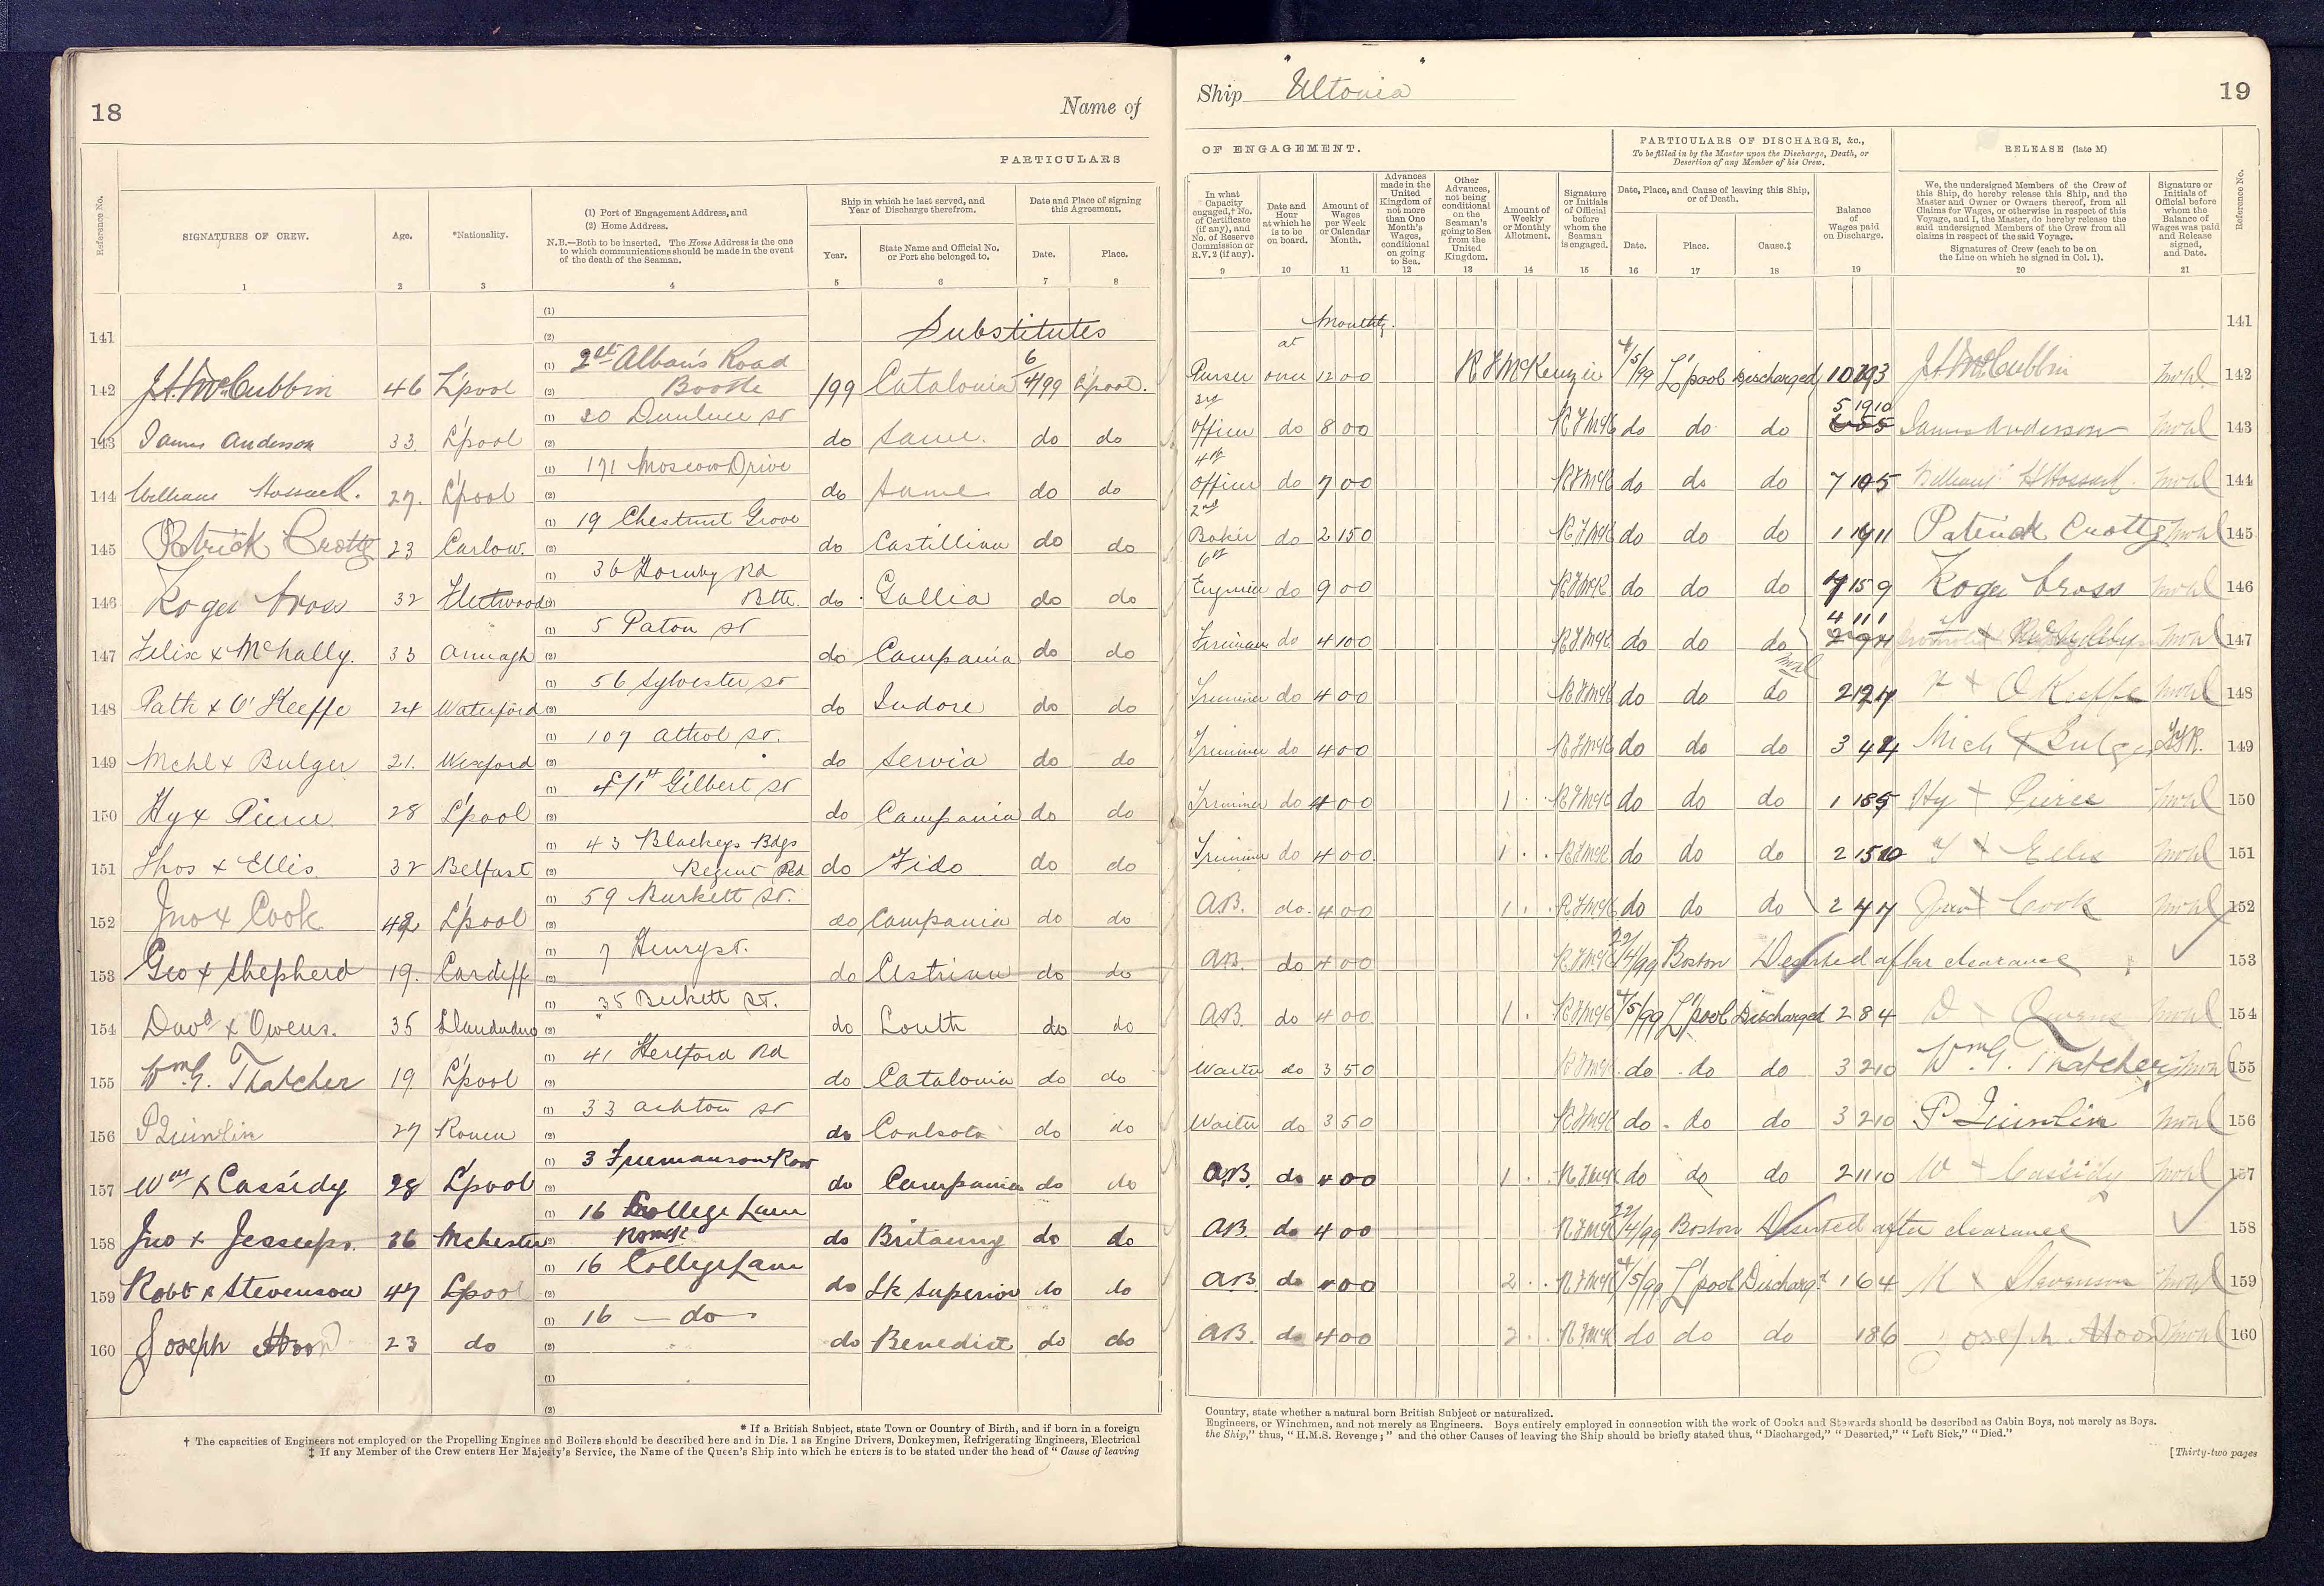 18
Name of
PARTICULARS
Reference No.
SIGNATURES OF CREW.
Age.
*Nationality.
(1) Port of Engagement Address, and
(2) Home Address.
N.B.—Both to be inserted. The Home Address is the one
to which communications should be made in the event
of the death of the Seaman.
Ship in which he last served, and
Year of Discharge therefrom.
Year.
State Name and Official No.
or Port she belonged to.
Date and Place of signing
this Agreement.
Date.
Place.
1 2 3 4 5 6 7 8
141 (1) (2) Substitutes
142 J.H. McCubbin 46 L'pool (1) 2 St Alban's Road (2) Bootle 199 Catalonia 6/4/99 L'pool.
143 James Anderson 33 L'pool (1) 20 Dunluce St (2) do Same. do do
144 William Hossack. 27. L'pool (1) 171 Moscow Drive (2) do Same do do
145 Patrick Crotty 23 Carlow. (1) 19 Chestnut Grove (2) do Castillian do do
146 Roger Cross 32 Fleetwood (1) 36 Hornby Rd (2) Btle. do Gallia do do
147 Felix x McNally. 33 Armagh (1) 5 Paton St (2) do Campania do do
148 Patk x O'Keeffe 24 Waterford (1) 56 Sylvester St (2) do Indore do do
149 Mchl x Bulger 21. Wexford (1) 107 Athol St. (2) do Servia do do
150 Hy x Pierce 28 L'pool (1) Gilbert St (2) do Campania do do
151 Thos x Ellis 32 Belfast (1) 43 Blackeys Bdgs (2) Regent Rd do Fido do do
152 Jno x Cook 42 L'pool (1) 59 Burkett St. (2) do Campania do do
153 Geo x Shepherd 19. Cardiff (1) 7 Henry St. (2) do Cestrian do do
154 Davd x Owens. 35 Llandudno (1) 35 Beckett St. (2) do Louth do do
155 Wm G. Thatcher 19 L'pool (1) 41 Hertford Rd (2) do Catalonia do do
156 P Quinlin 27 Rouen (1) 33 Ashton St (2) do do do
157 Wm x Cassidy 28 L'pool (1) 3 Freemanson Row (2) do Campania do do
158 Jno x Jessups. 36 Mchester (1) 16 College Lane (2) do Britanny do do
159 Robt x Stevenson 47 L'pool (1) 16 College Lane (2) do Lk Superior do do
160 Joseph Hood 23 do (1) 16 — do (2) do Benedict do do
(1)
(2)
* If a British Subject, state Town or Country of Birth, and if born in a foreign
† The capacities of Engineers not employed or the Propelling Engines and Boilers should be described here and in Dis. 1 as Engine Drivers, Donkeymen, Refrigerating Engineers, Electrical
‡ If any Member of the Crew enters Her Majesty's Service, the Name of the Queen's Ship into which he enters is to be stated under the head of "Cause of leaving
Ship "Ultonia"
19
OF ENGAGEMENT.
PARTICULARS OF DISCHARGE, &c.,
To be filled in by the Master upon the Discharge, Death, or
Desertion of any Member of his Crew.
RELEASE (late M)
In what
Capacity
engaged,† No.
of Certificate
(if any), and
No. of Reserve
Commission or
R.V. 2 (if any).
Date and
Hour
at which he
is to be
on board.
Amount of
Wages
per Week
or Calendar
Month.
Advances
made in the
United
Kingdom of
not more
than One
Month's
Wages,
conditional
on going
to Sea.
Other
Advances,
not being
conditional
on the
Seaman's
going to Sea
from the
United
Kingdom.
Amount of
Weekly
or Monthly
Allotment.
Signature
or Initials
of Official
before
whom the
Seaman
is engaged.
Date, Place, and Cause of leaving this Ship,
or of Death.
Date. Place. Cause.‡
Balance
of
Wages paid
on Discharge.
We, the undersigned Members of the Crew of
this Ship, do hereby release this Ship, and the
Master and Owner or Owners thereof, from all
Claims for Wages, or otherwise in respect of this
Voyage, and I, the Master, do hereby release the
said undersigned Members of the Crew from all
claims in respect of the said Voyage.
Signatures of Crew (each to be on
the Line on which he signed in Col. 1).
Signature or
Initials of
Official before
whom the
Balance of
Wages was paid
and Release
signed,
and Date.
Reference No.
9 10 11 12 13 14 15 16 17 18 19 20 21
Monthly. 141
Purser at once 12 0 0 R J McKenzie 4/5/99 L'pool Discharged J.H. McCubbin 142
3rd Officer do 8 0 0 RJMcK do do do 5 19 10 James Anderson 143
4th Officer do 7 0 0 RJMcK do do do William Hossack 144
2nd Baker do 2 15 0 RJMcK do do do Patrick Crotty 145
6th Engineer do 9 0 0 RJMcK do do do 15 9 Roger Cross 146
Fireman do 4 10 0 RJMcK do do do 4 11 1 147
Trimmer do 4 0 0 RJMcK do do do x O'Keeffe 148
Trimmer do 4 0 0 RJMcK do do do 3 4 4 Mich x Bulger 149
Trimmer do 4 0 0 1 RJMcK do do do Hy x Pierce 150
Trimmer do 4 0 0 1 RJMcK do do do 2 15 10 T x Ellis 151
A.B. do 4 0 0 1 RJMcK do do do 2 4 4 Jno x Cook 152
A.B. do 4 0 0 RJMcK 22/4/99 Boston Deserted after clearance 153
A.B. do 4 0 0 1 RJMcK 4/5/99 L'pool Discharged 2 8 4 D x Owens 154
Waiter do 3 5 0 RJMcK do do do 3 2 10 Wm G. Thatcher 155
Waiter do 3 5 0 RJMcK do do do 3 2 10 P Quinlin 156
A.B. do 4 0 0 1 RJMcK do do do 2 11 10 W x Cassidy 157
A.B. do 4 0 0 RJMcK 22/4/99 Boston Deserted after clearance 158
A.B. do 4 0 0 2 RJMcK 4/5/99 L'pool Discharged 1 6 4 R x Stevenson 159
A.B. do 4 0 0 2 RJMcK do do do 1 8 6 Joseph Hood 160
Country, state whether a natural born British Subject or naturalized.
Engineers, or Winchmen, and not merely as Engineers. Boys entirely employed in connection with the work of Cooks and Stewards should be described as Cabin Boys, not merely as Boys.
the Ship," thus, "H.M.S. Revenge;" and the other Causes of leaving the Ship should be briefly stated thus, "Discharged," "Deserted," "Left Sick," "Died."
[Thirty-two pages